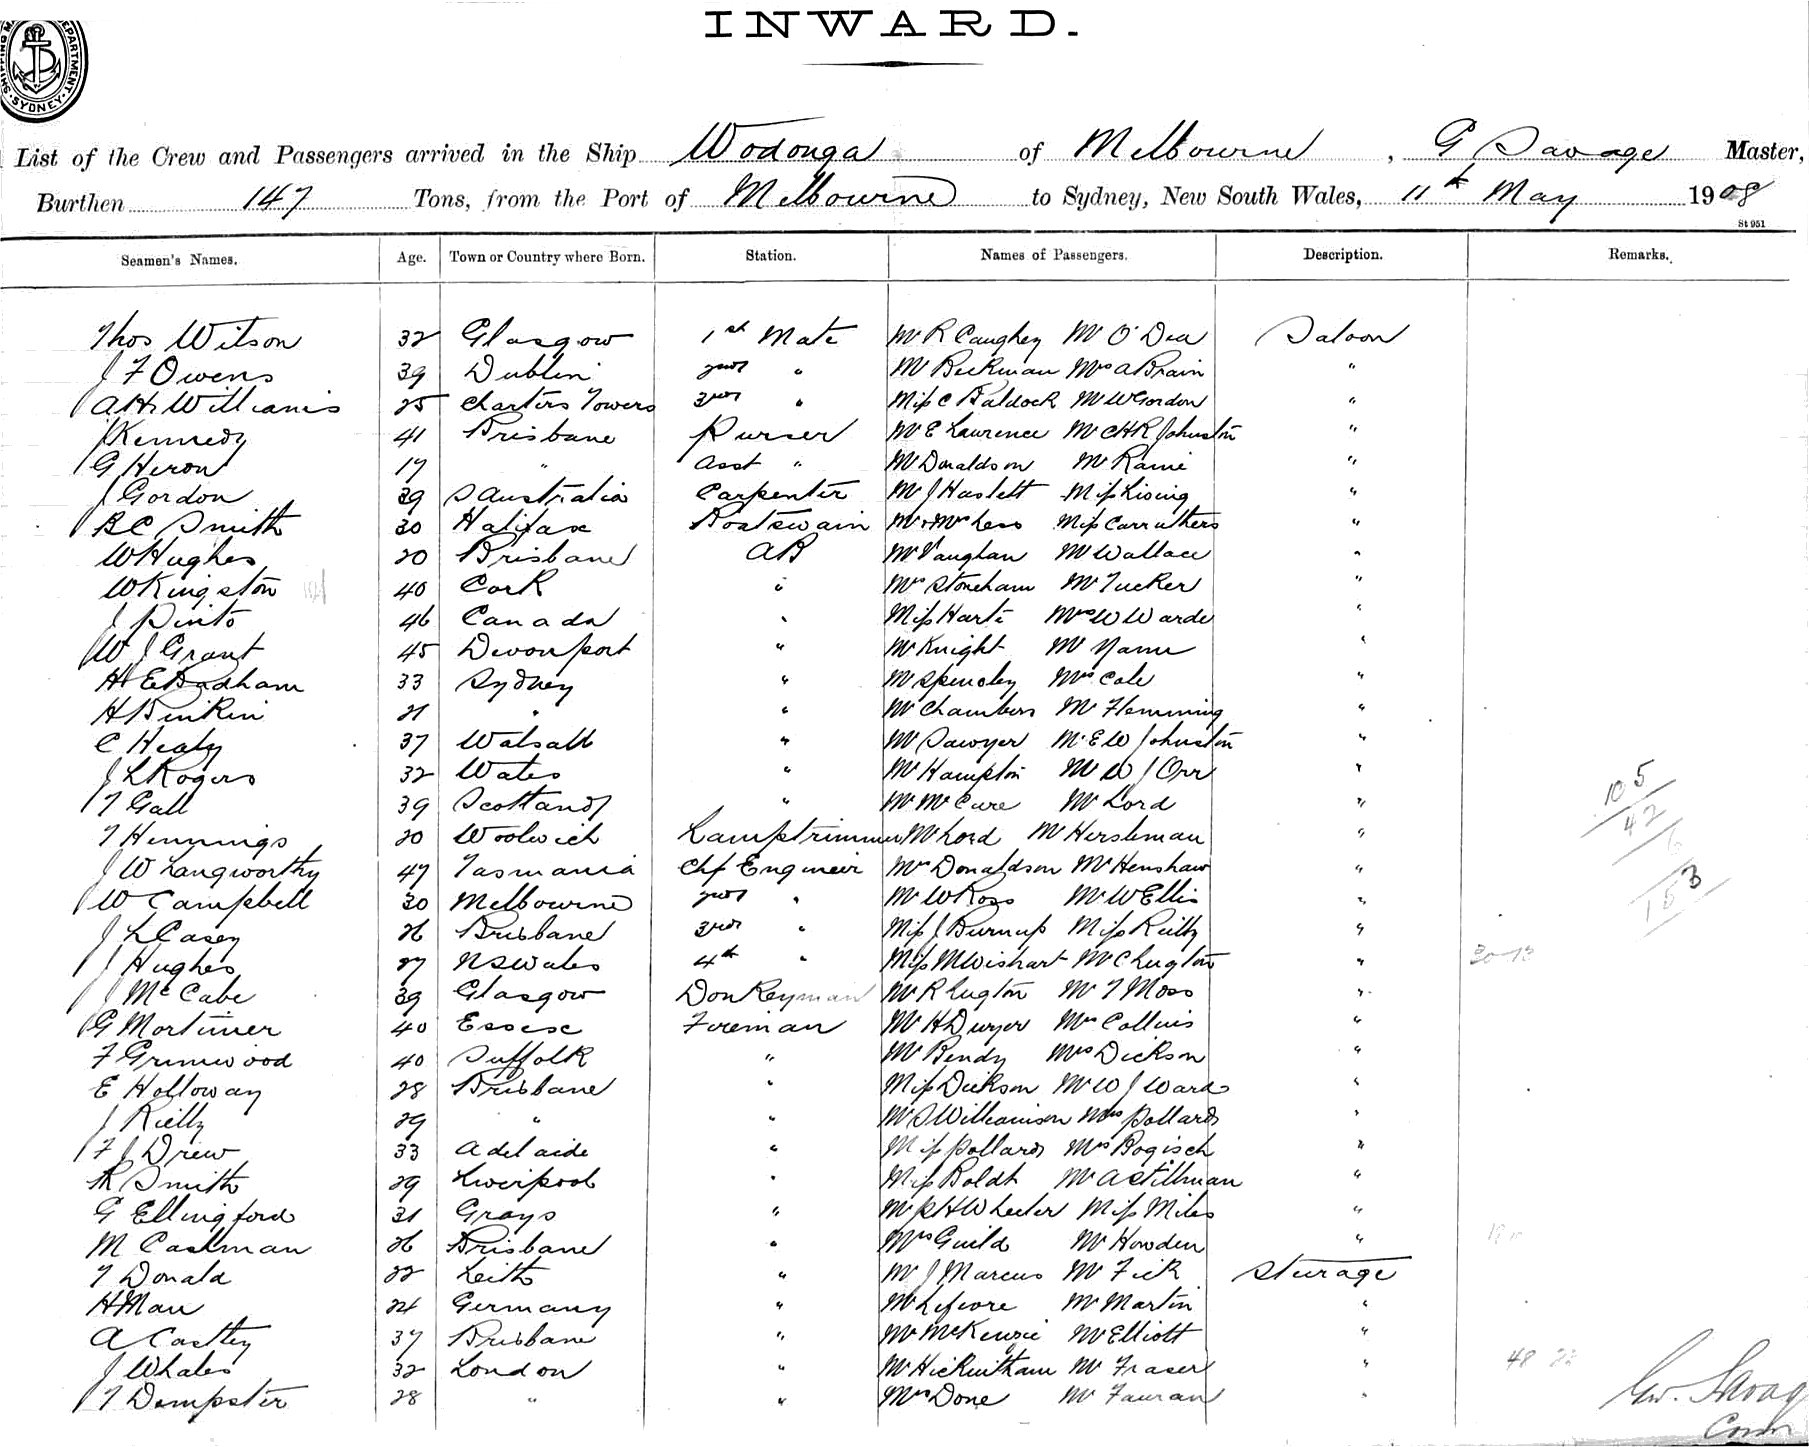 INWARD.
SYDNEY
List of the Crew and Passengers arrived in the Ship Wodonga of Melbourne, G Savage Master,
Burthen 147 Tons, from the Port of Melbourne to Sydney, New South Wales, 11th May 1908
St 951
Seamen's Names. Age. Town or Country where Born. Station. Names of Passengers. Description. Remarks.
Thos Wilson 32 Glasgow 1st Mate Mr R Caughey Mr O'Dea Saloon
J F Owens 39 Dublin 2nd " Mr Beckman Mrs A Brain "
A H Williams 25 Charters Towers 3rd " Miss C Baldock Mr W Gordon "
J Kennedy 41 Brisbane Purser Mr E Laurence Mr C H R Johnston "
G Heron 19 " Asst " Mr Donaldson Mr Raine "
J Gordon 39 S Australia Carpenter Mr J Haslett Miss "
B C Smith 30 Halifax Boatswain Mr & Mrs Less Miss Carruthers "
W Hughes 20 Brisbane AB Mr Vaughan Mr Wallace "
W Kingston 40 Cork " Mrs Stoneham Mr Tucker "
J Pinto 46 Canada " Miss Harte Mrs W Warde "
W J Grant 45 Devonport " Mr Knight Mr "
H E Badham 33 Sydney " Mr Spensley Mrs Cole "
H Binkin 21 " " Mr Chambers Mr Flemming "
C Healy 37 Walsall " Mr Sawyer Mr E W Johnston "
J L Rogers 32 Wales " Mr Hampton Mr W J Orr "
T Gall 39 Scotland " Mr McCure Mr Lord "
T Hennings 20 Woolwich Lamptrimmer Mr Lord Mr Hersleman "
J W Langworthy 47 Tasmania Chf Engineer Mr Donaldson Mr Henshaw "
W Campbell 30 Melbourne 2nd " Mr W Ross Mr W Ellis "
J L Casey 26 Brisbane 3rd " Miss J Burnup Miss Reilly "
J Hughes 27 N S Wales 4th " Miss M Wishart Mr C Lugton "
J McCabe 39 Glasgow Donkeyman Mr R Lugton Mr T Moss "
G Mortimer 40 Essex Foreman Mr H Dwyer Mrs Collins "
F Grimwood 40 Suffolk " Mr Bendy Mrs Dickson "
E Holloway 28 Brisbane " Miss Dickson Mr W J Ward "
J Rielly 29 " " Mr S Williamson Mrs Pollard "
F J Drew 33 Adelaide " Miss Pollard Mrs Bogisch "
R Smith 29 Liverpool " Miss Boldt Mr A Stillman "
G Ellingford 31 Grays " Mr R H Wheeler Miss Miles "
M Cashman 26 Brisbane " Mrs Guild Mr Howden "
T Donald 22 Leith " Mr J Marcus Mr Fick Sturage
H Man 24 Germany " Mr Lefiore Mr Martin "
A Castley 37 Brisbane " Mr McKenzie Mr Elliott "
J Whales 32 London " Mr Hickintham Mr Fraser "
T Dempster 28 " " Mrs Done Mr Fauran "
105
42
6
153
Geo. Savage